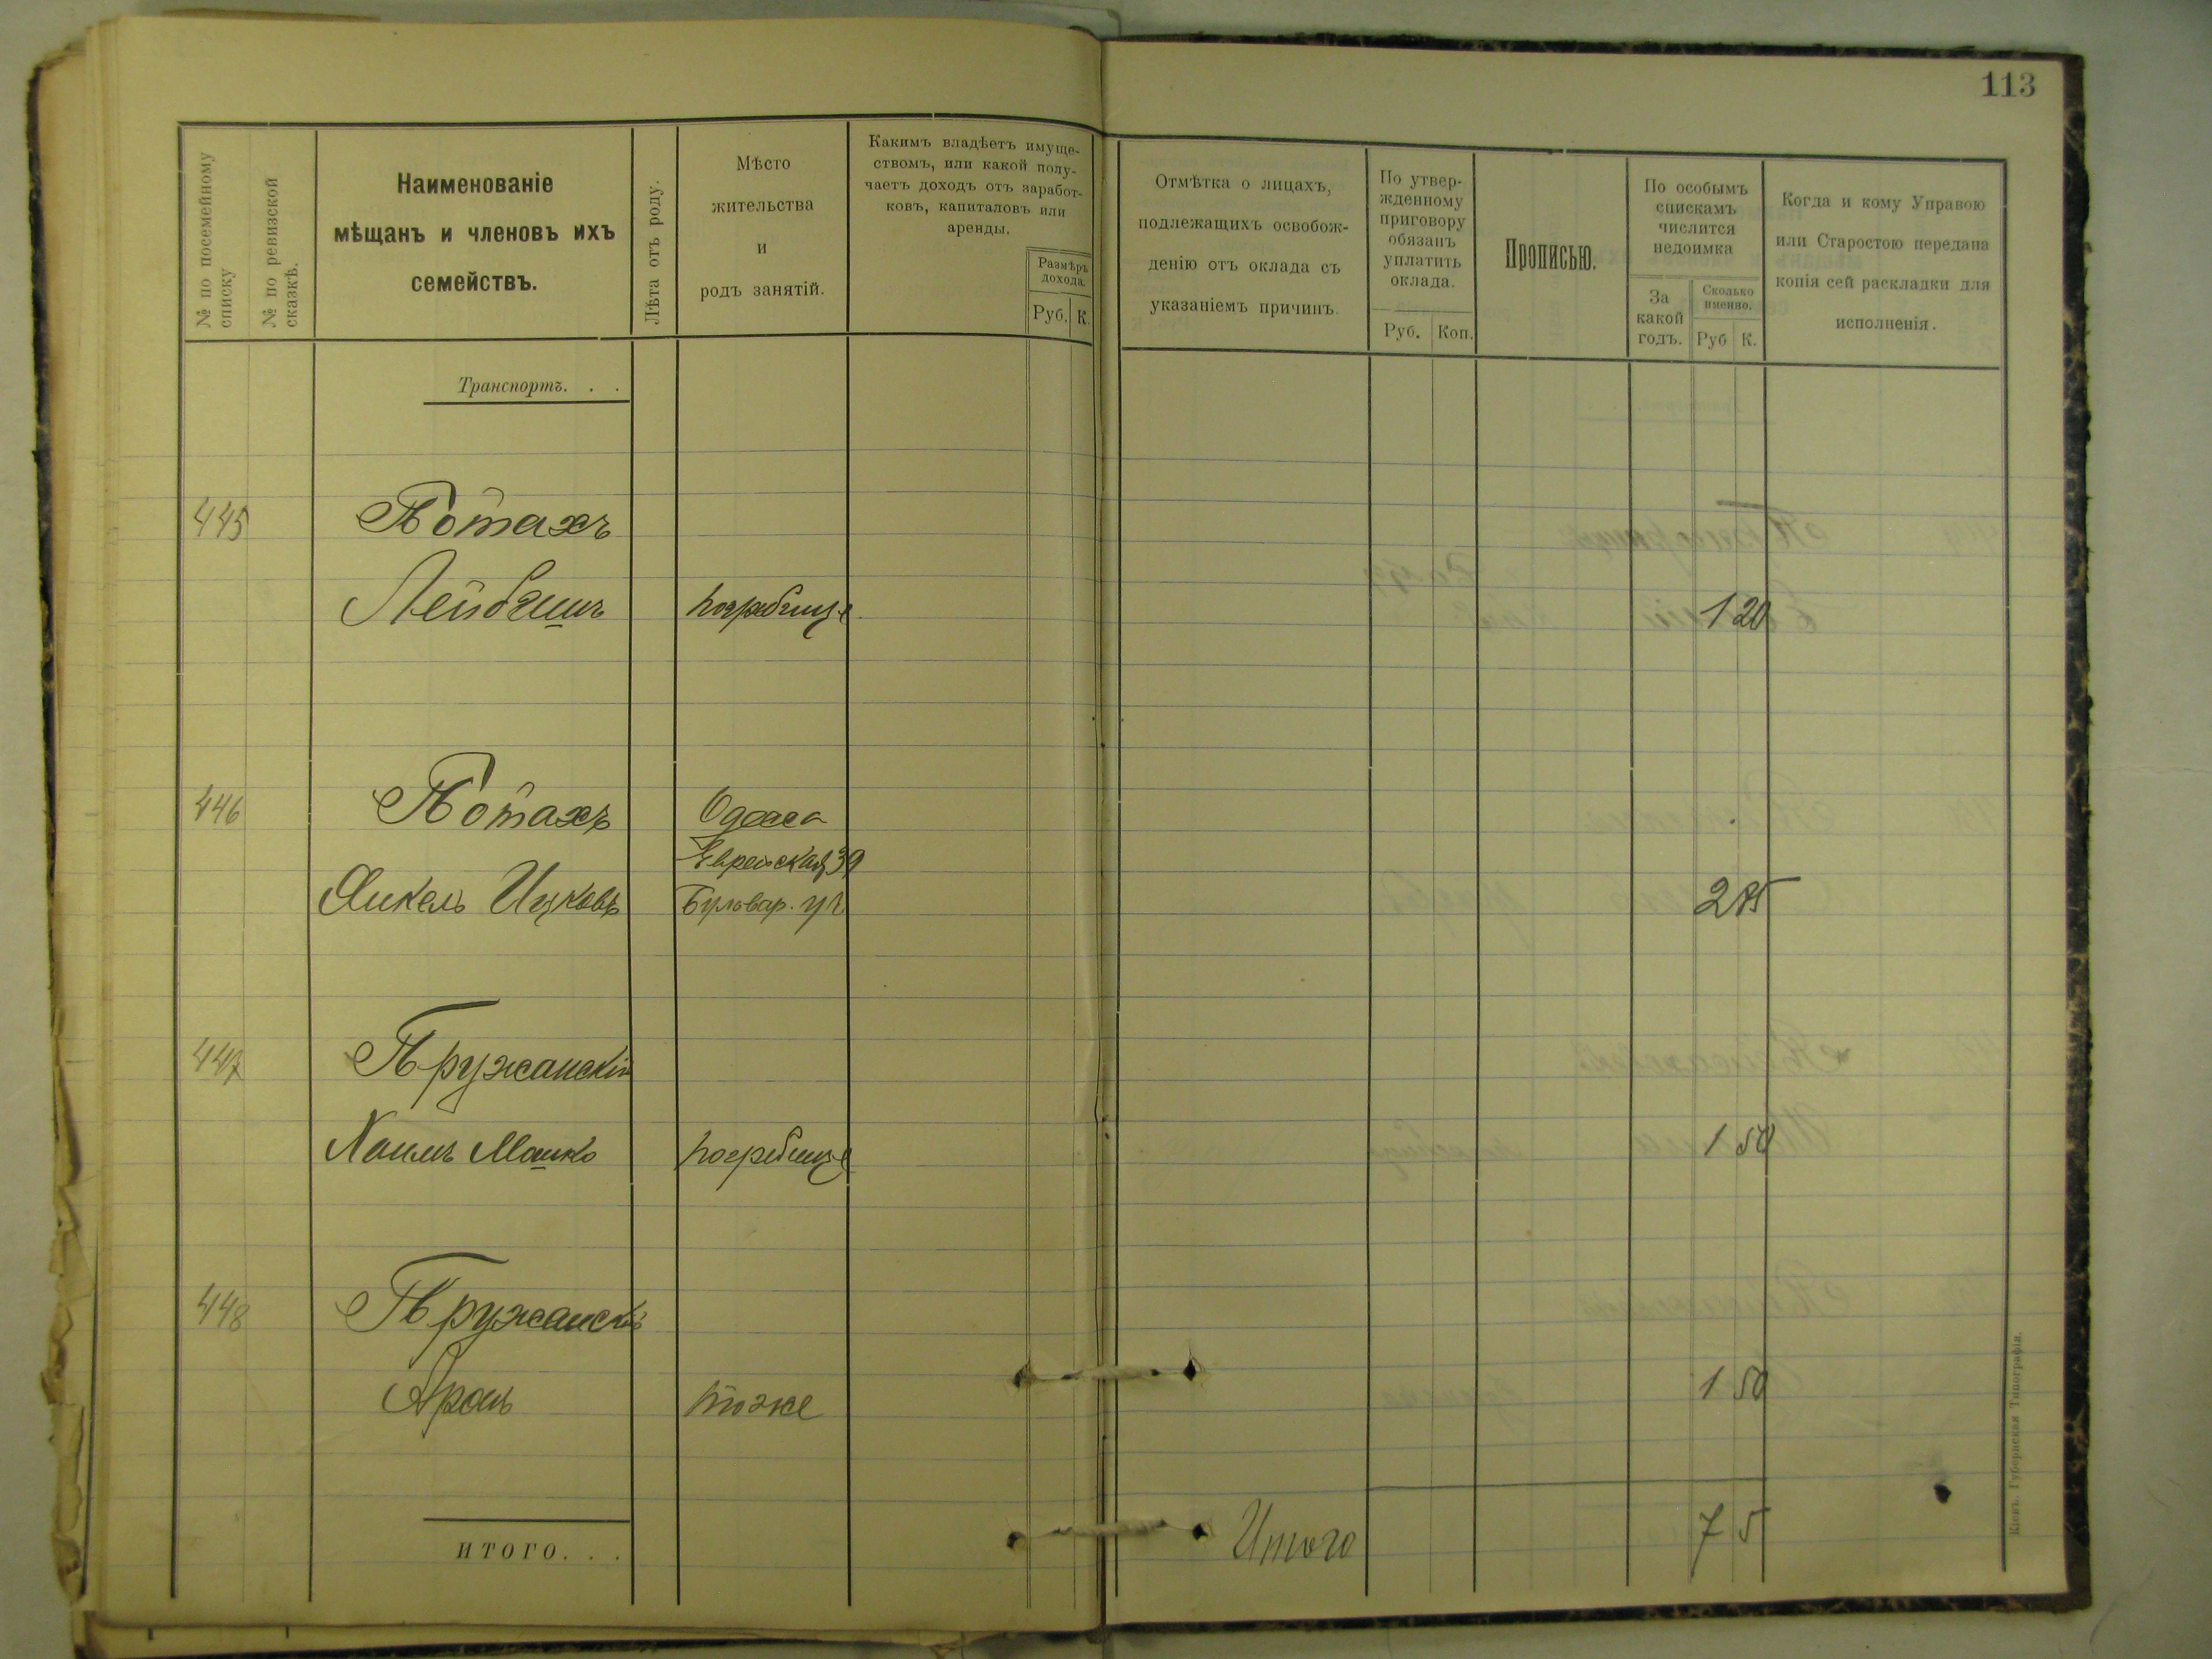 113
№ по посемейному списку
№ по ревизской сказкѣ.
Наименованіе
мѣщанъ и членовъ ихъ
семействъ.
Лѣта отъ роду.
Мѣсто
жительства
и
родъ занятій.
Какимъ владѣетъ имуще-
ствомъ, или какой полу-
чаетъ доходъ отъ заработ-
ковъ, капиталовъ или
аренды.
Размѣръ
дохода.
Руб. К.
Отмѣтка о лицахъ,
подлежащихъ освобож-
денію отъ оклада съ
указаніемъ причинъ.
По утвер-
жденному
приговору
обязанъ
уплатить
оклада.
Руб. Коп.
Прописью.
По особымъ
спискамъ
числится
недоимка
За
какой
годъ.
Сколько
именно.
Руб К.
Когда и кому Управою
или Старостою передана
копія сей раскладки для
исполненія.
Транспортъ. . .
445 Потахъ
Лейбишъ погребище 1 20
446 Потахъ Одесса
Еврейская 39
Янкель Ицковъ Бульвар. уч 2 85
447 Пружанскій
Хаимъ Мошко погребище 1 50
448 Пружанскій
Аронъ тоже 1 50
ИТОГО. . . Итого 7 5
Кіевъ. Губернская Типографія.